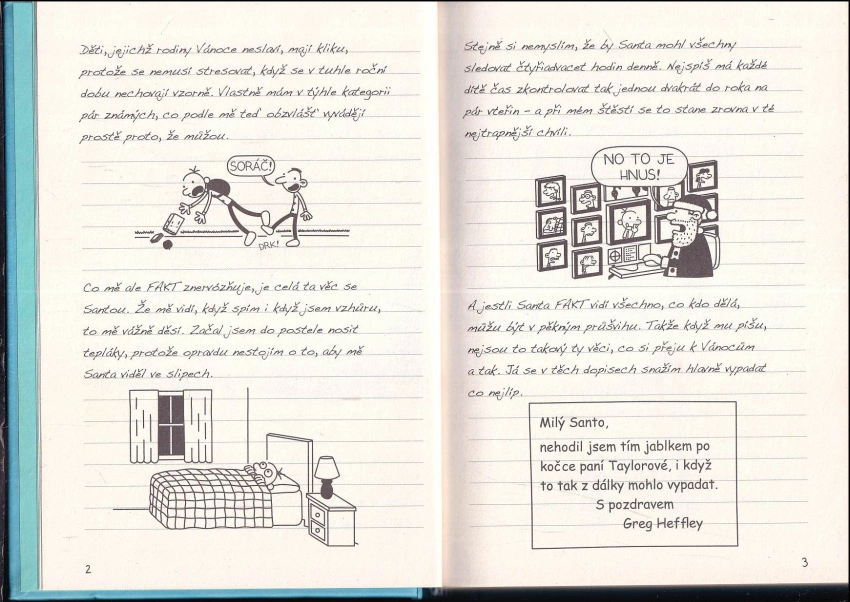 Děti, jejichž rodiny Vánoce neslaví, mají kliku,
protože se nemusí stresovat, když se v tuhle roční
dobu nechovají vzorně. Vlastně mám v týhle kategorii
pár známých, co podle mě teď obzvlášť vyvádějí
prostě proto, že můžou.
SORÁČ!
DRK!
Co mě ale FAKT znervózňuje, je celá ta věc se
Santou. Že mě vidí, když spím i když jsem vzhůru,
to mě vážně děsí. Začal jsem do postele nosit
tepláky, protože opravdu nestojím o to, aby mě
Santa viděl ve slipech.
2
Stejně si nemyslím, že by Santa mohl všechny
sledovat čtyřiadvacet hodin denně. Nejspíš má každé
dítě čas zkontrolovat tak jednou dvakrát do roka na
pár vteřin – a při mém štěstí se to stane zrovna v té
nejtrapnější chvíli.
NO TO JE
HNUS!
A jestli Santa FAKT vidí všechno, co kdo dělá,
můžu být v pěkným průšvihu. Takže když mu píšu,
nejsou to takový ty věci, co si přeju k Vánocům
a tak. Já se v těch dopisech snažím hlavně vypadat
co nejlíp.
Milý Santo,
nehodil jsem tím jablkem po
kočce paní Taylorové, i když
to tak z dálky mohlo vypadat.
S pozdravem
Greg Heffley
3